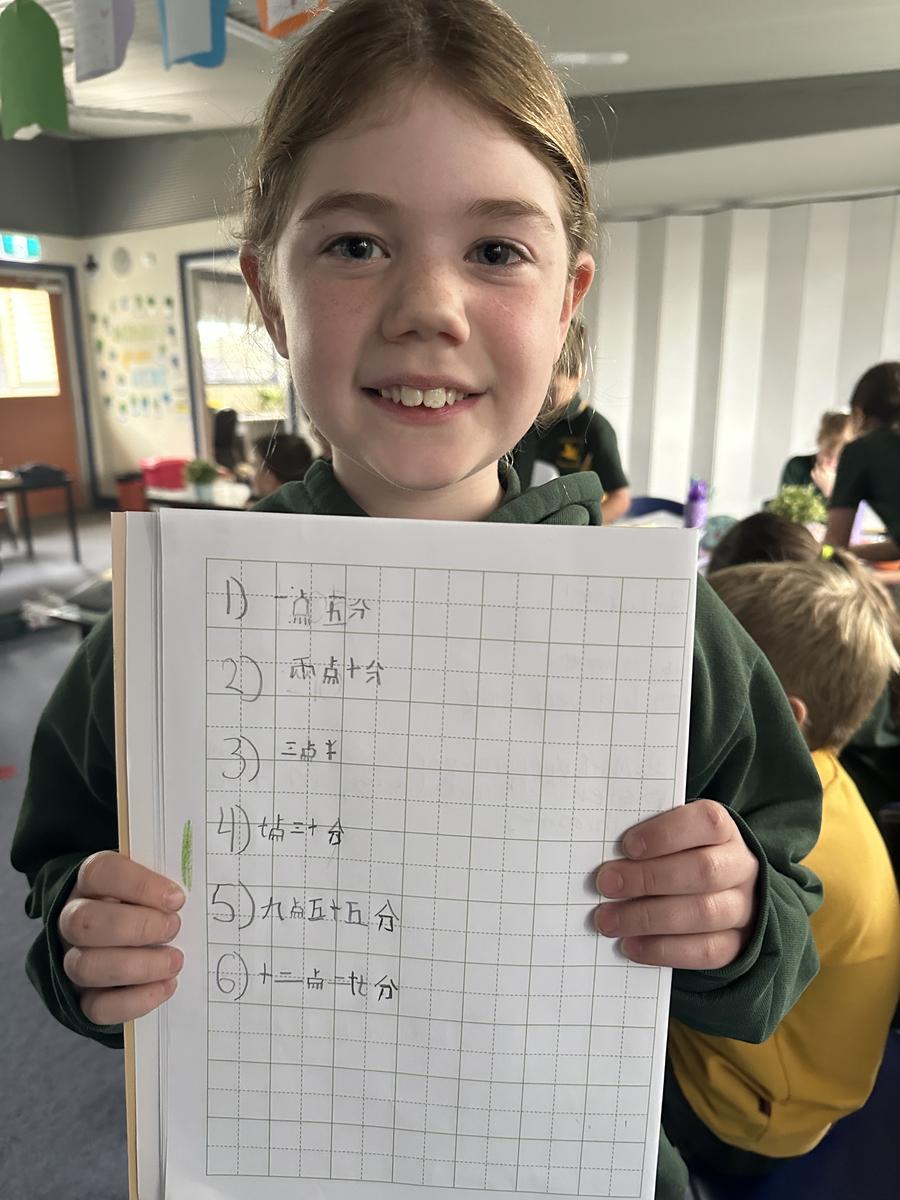 1) 一点五分
2) 两点十分
3) 三点半
4) 七点三十分
5) 九点五十五分
6) 十二点二十七分